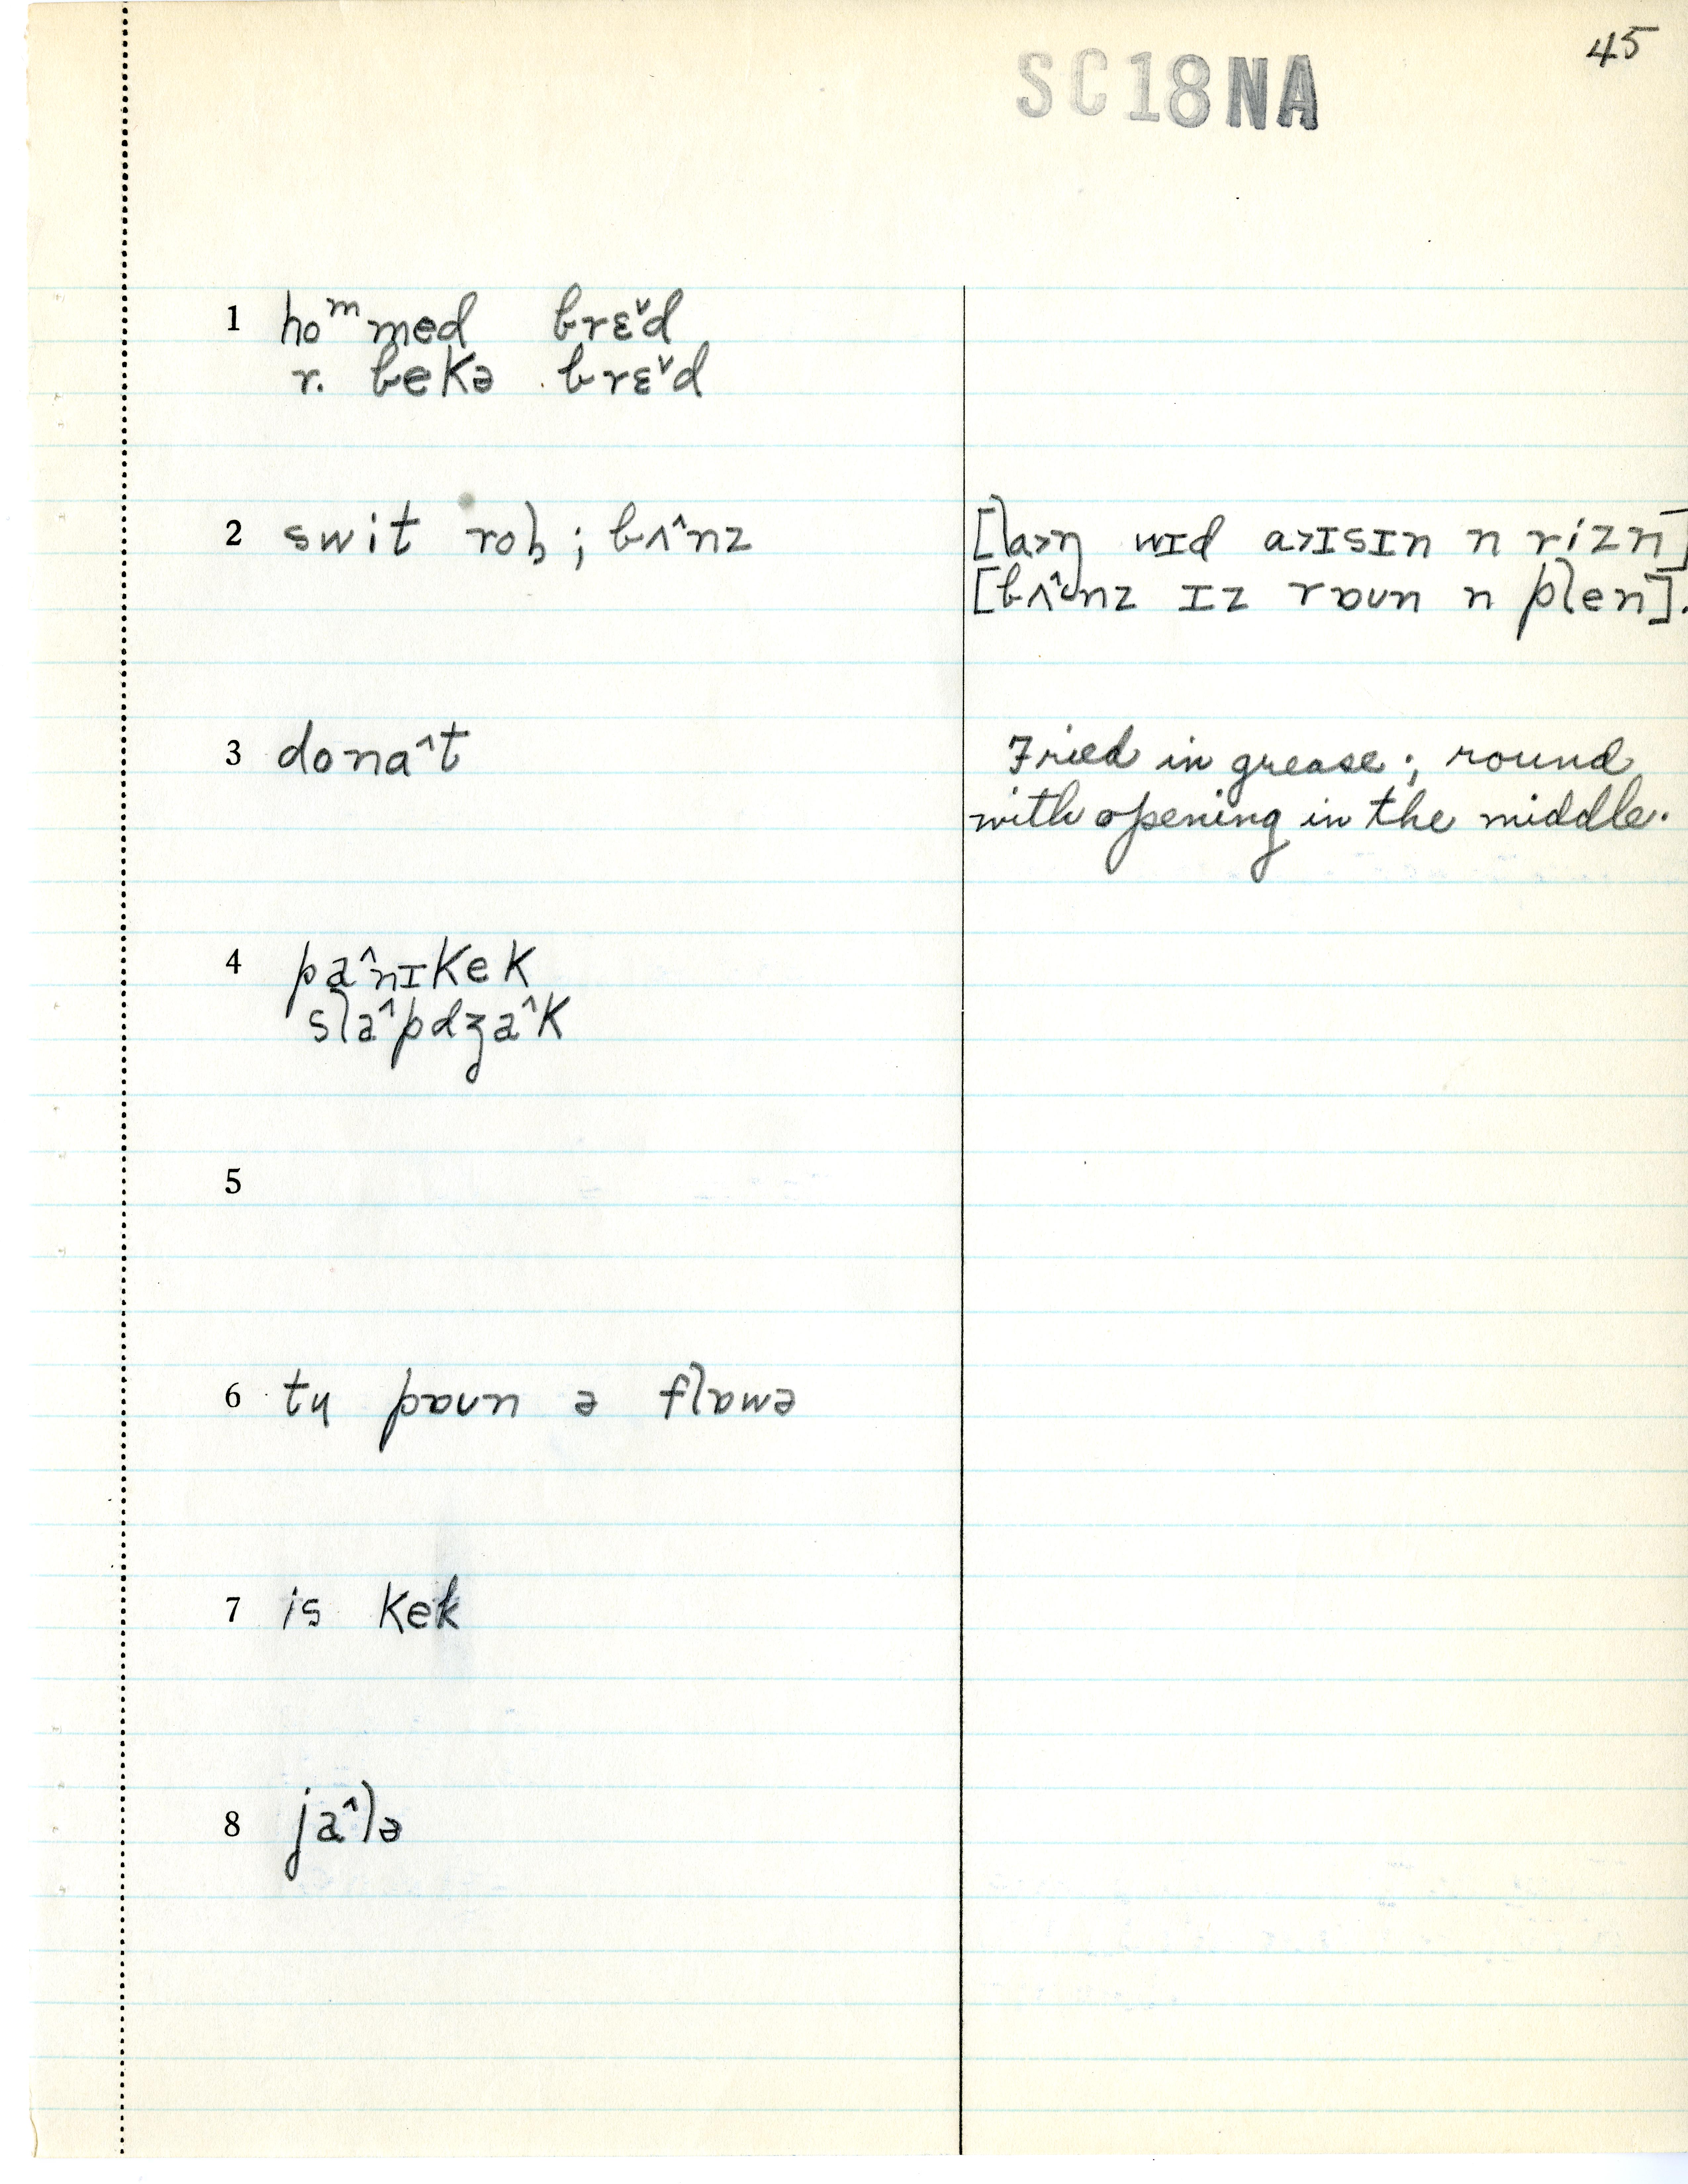 45
SC18NA
1 hoᵐmed brɛ˅d
r. bekə brɛ˅d
2 swit rol; bʌ^nz [la>ŋ wɪd a>ɪsɪn n rizn]
[bʌ^nz ɪz rɒun n plen].
3 dona^t Fried in grease; round
with opening in the middle.
4 pa^nɪkek
sla^pdʒa^k
5
6 tʉ pɒun ə flɒwə
7 is kek
8 ja^lə